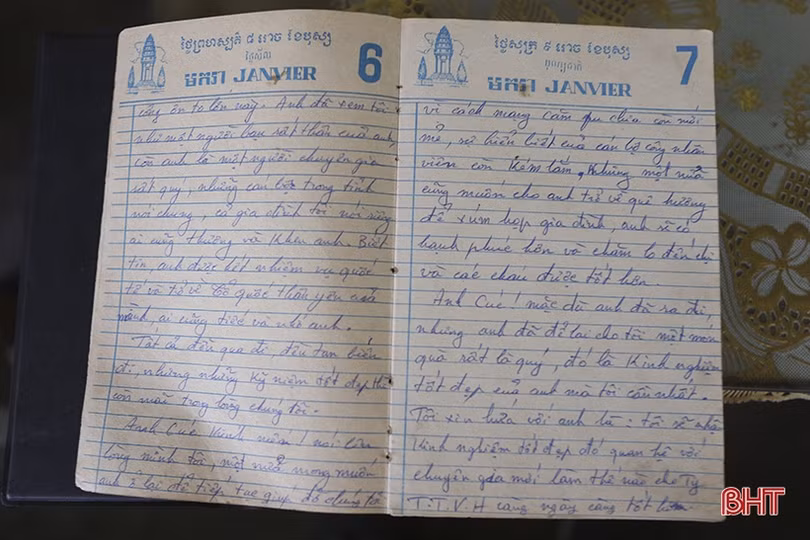 ថ្ងៃព្រហស្បតិ៍ ៨ រោច ខែបុស្ស
ថ្ងៃសីល
មករា JANVIER 6
công ơn to lớn này. Anh đã xem tôi
như một người bạn rất thân của anh,
còn anh là một người chuyên gia
rất quý, những cán bộ trong tỉnh
nói chung, cả gia đình tôi nói riêng
ai cũng thương và khen anh. Biết
tin, anh được hết nhiệm vụ quốc
tế và trở về Tổ quốc thân yêu của
mình, ai cũng tiếc và nhớ anh.
Tất cả đều qua đi, đều tan biến
đi, nhưng những kỷ niệm tốt đẹp thì
còn mãi trong lòng chúng tôi.
Anh Cúc Kính mến! nói
lòng mình tôi, một nửa mong muốn
anh ở lại để tiếp tục giúp đỡ chúng tôi
ថ្ងៃសុក្រ ៩ រោច ខែបុស្ស
មករា JANVIER 7
vì cách mạng căm pu chia còn mới
mẻ, sự hiểu biết của cán bộ công nhân
viên còn kém lắm, Nhưng một nửa
cũng muốn cho anh trở về quê hương
để xum họp gia đình, anh sẽ có
hạnh phúc hơn và chăm lo đến chị
và các cháu được tốt hơn.
Anh Cúc! mặc dù anh đã ra đi,
nhưng anh đã để lại cho tôi một món
quà rất là quý, đó là Kinh nghiệm
tốt đẹp của anh mà tôi cần nhất.
Tôi xin hứa với anh là: tôi sẽ nhận
Kinh nghiệm tốt đẹp đó quan hệ với
chuyên gia mới làm thế nào cho Ty
T.T.V.H càng ngày càng tốt hơn.
BHT